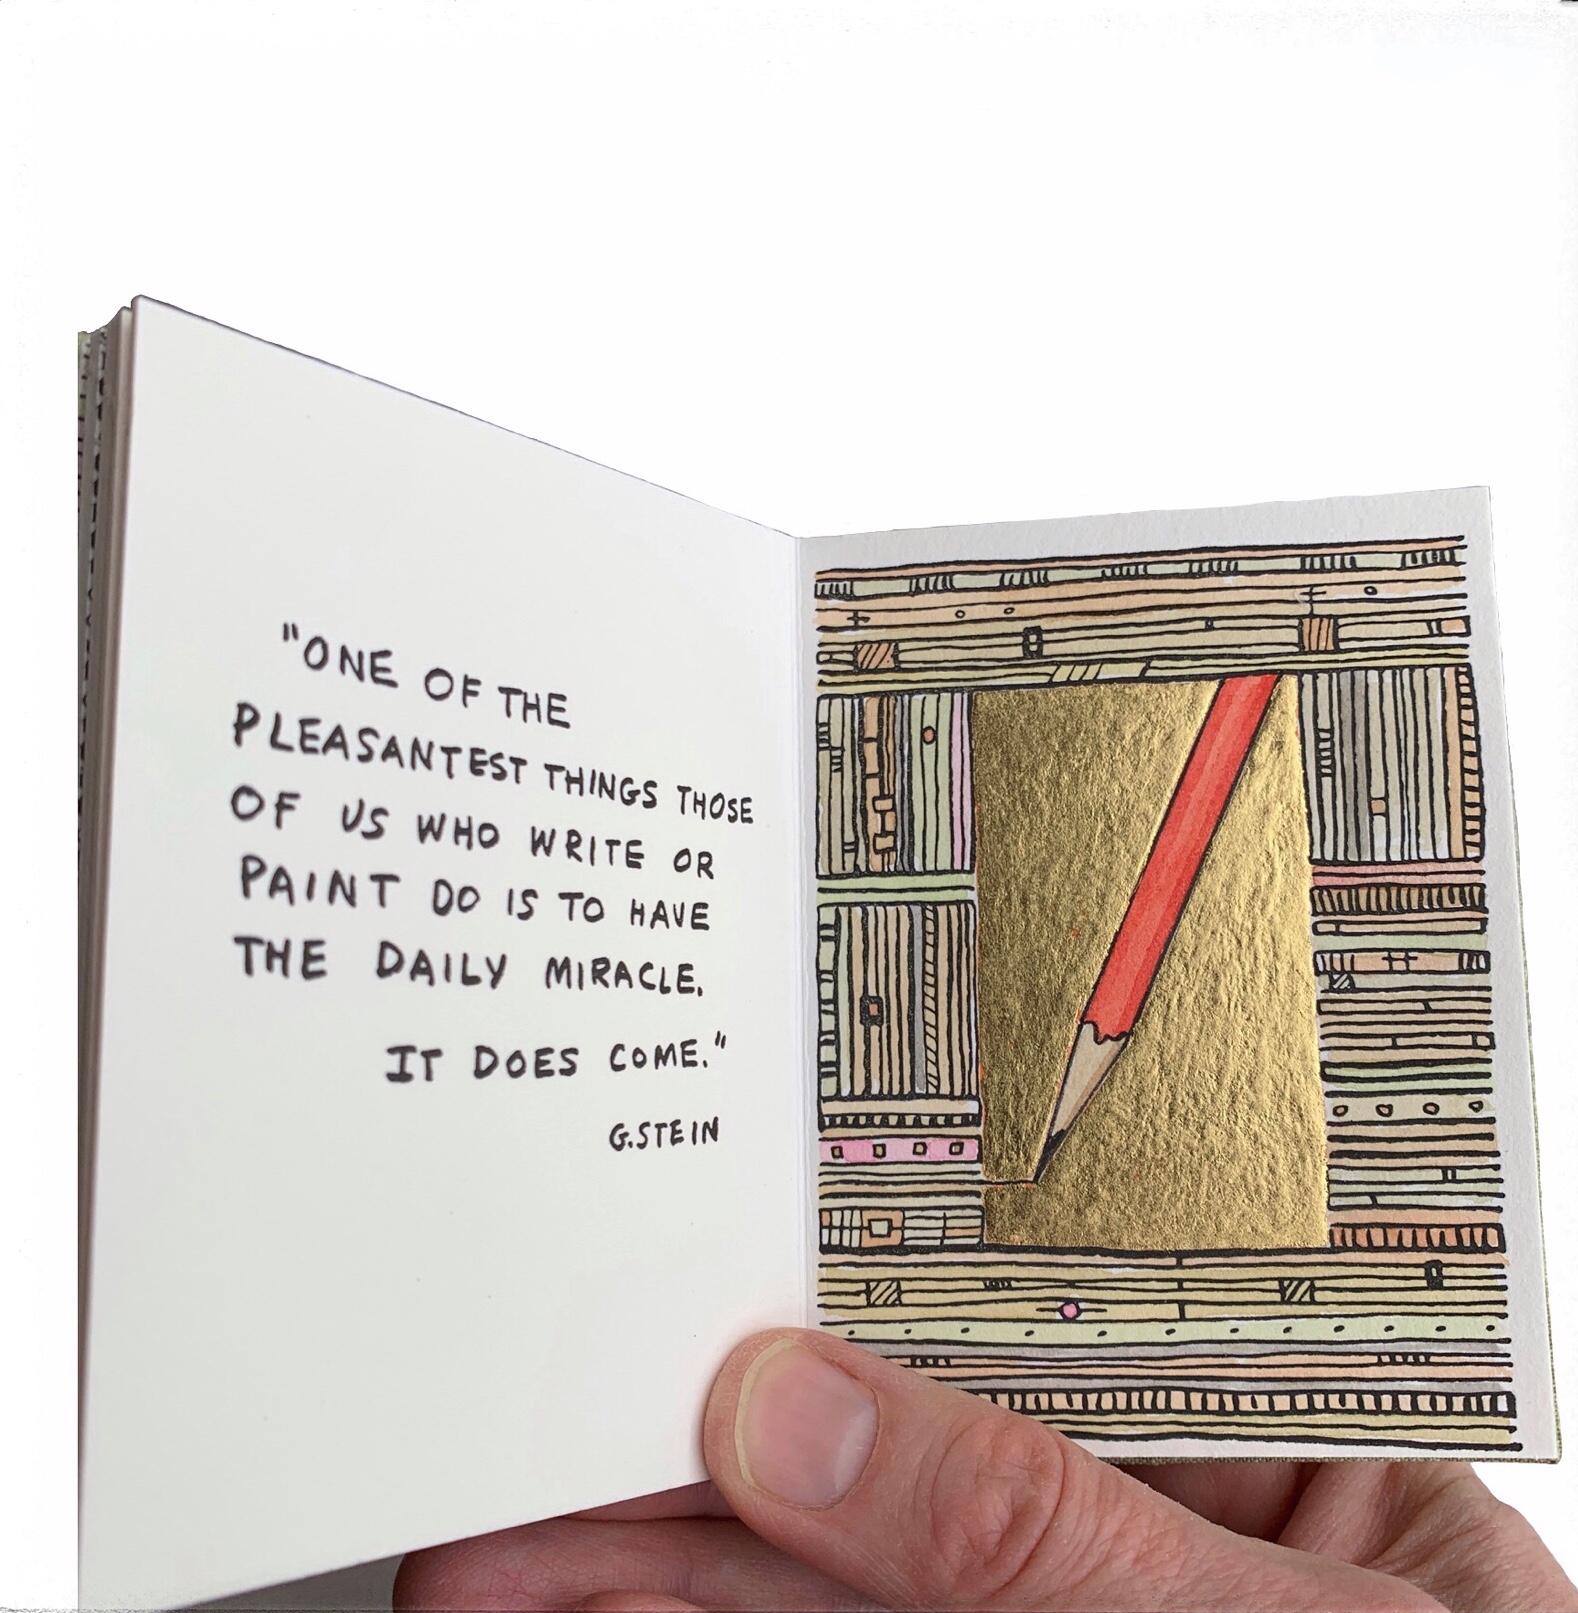 "ONE OF THE
PLEASANTEST THINGS THOSE
OF US WHO WRITE OR
PAINT DO IS TO HAVE
THE DAILY MIRACLE.
IT DOES COME."
G.STEIN